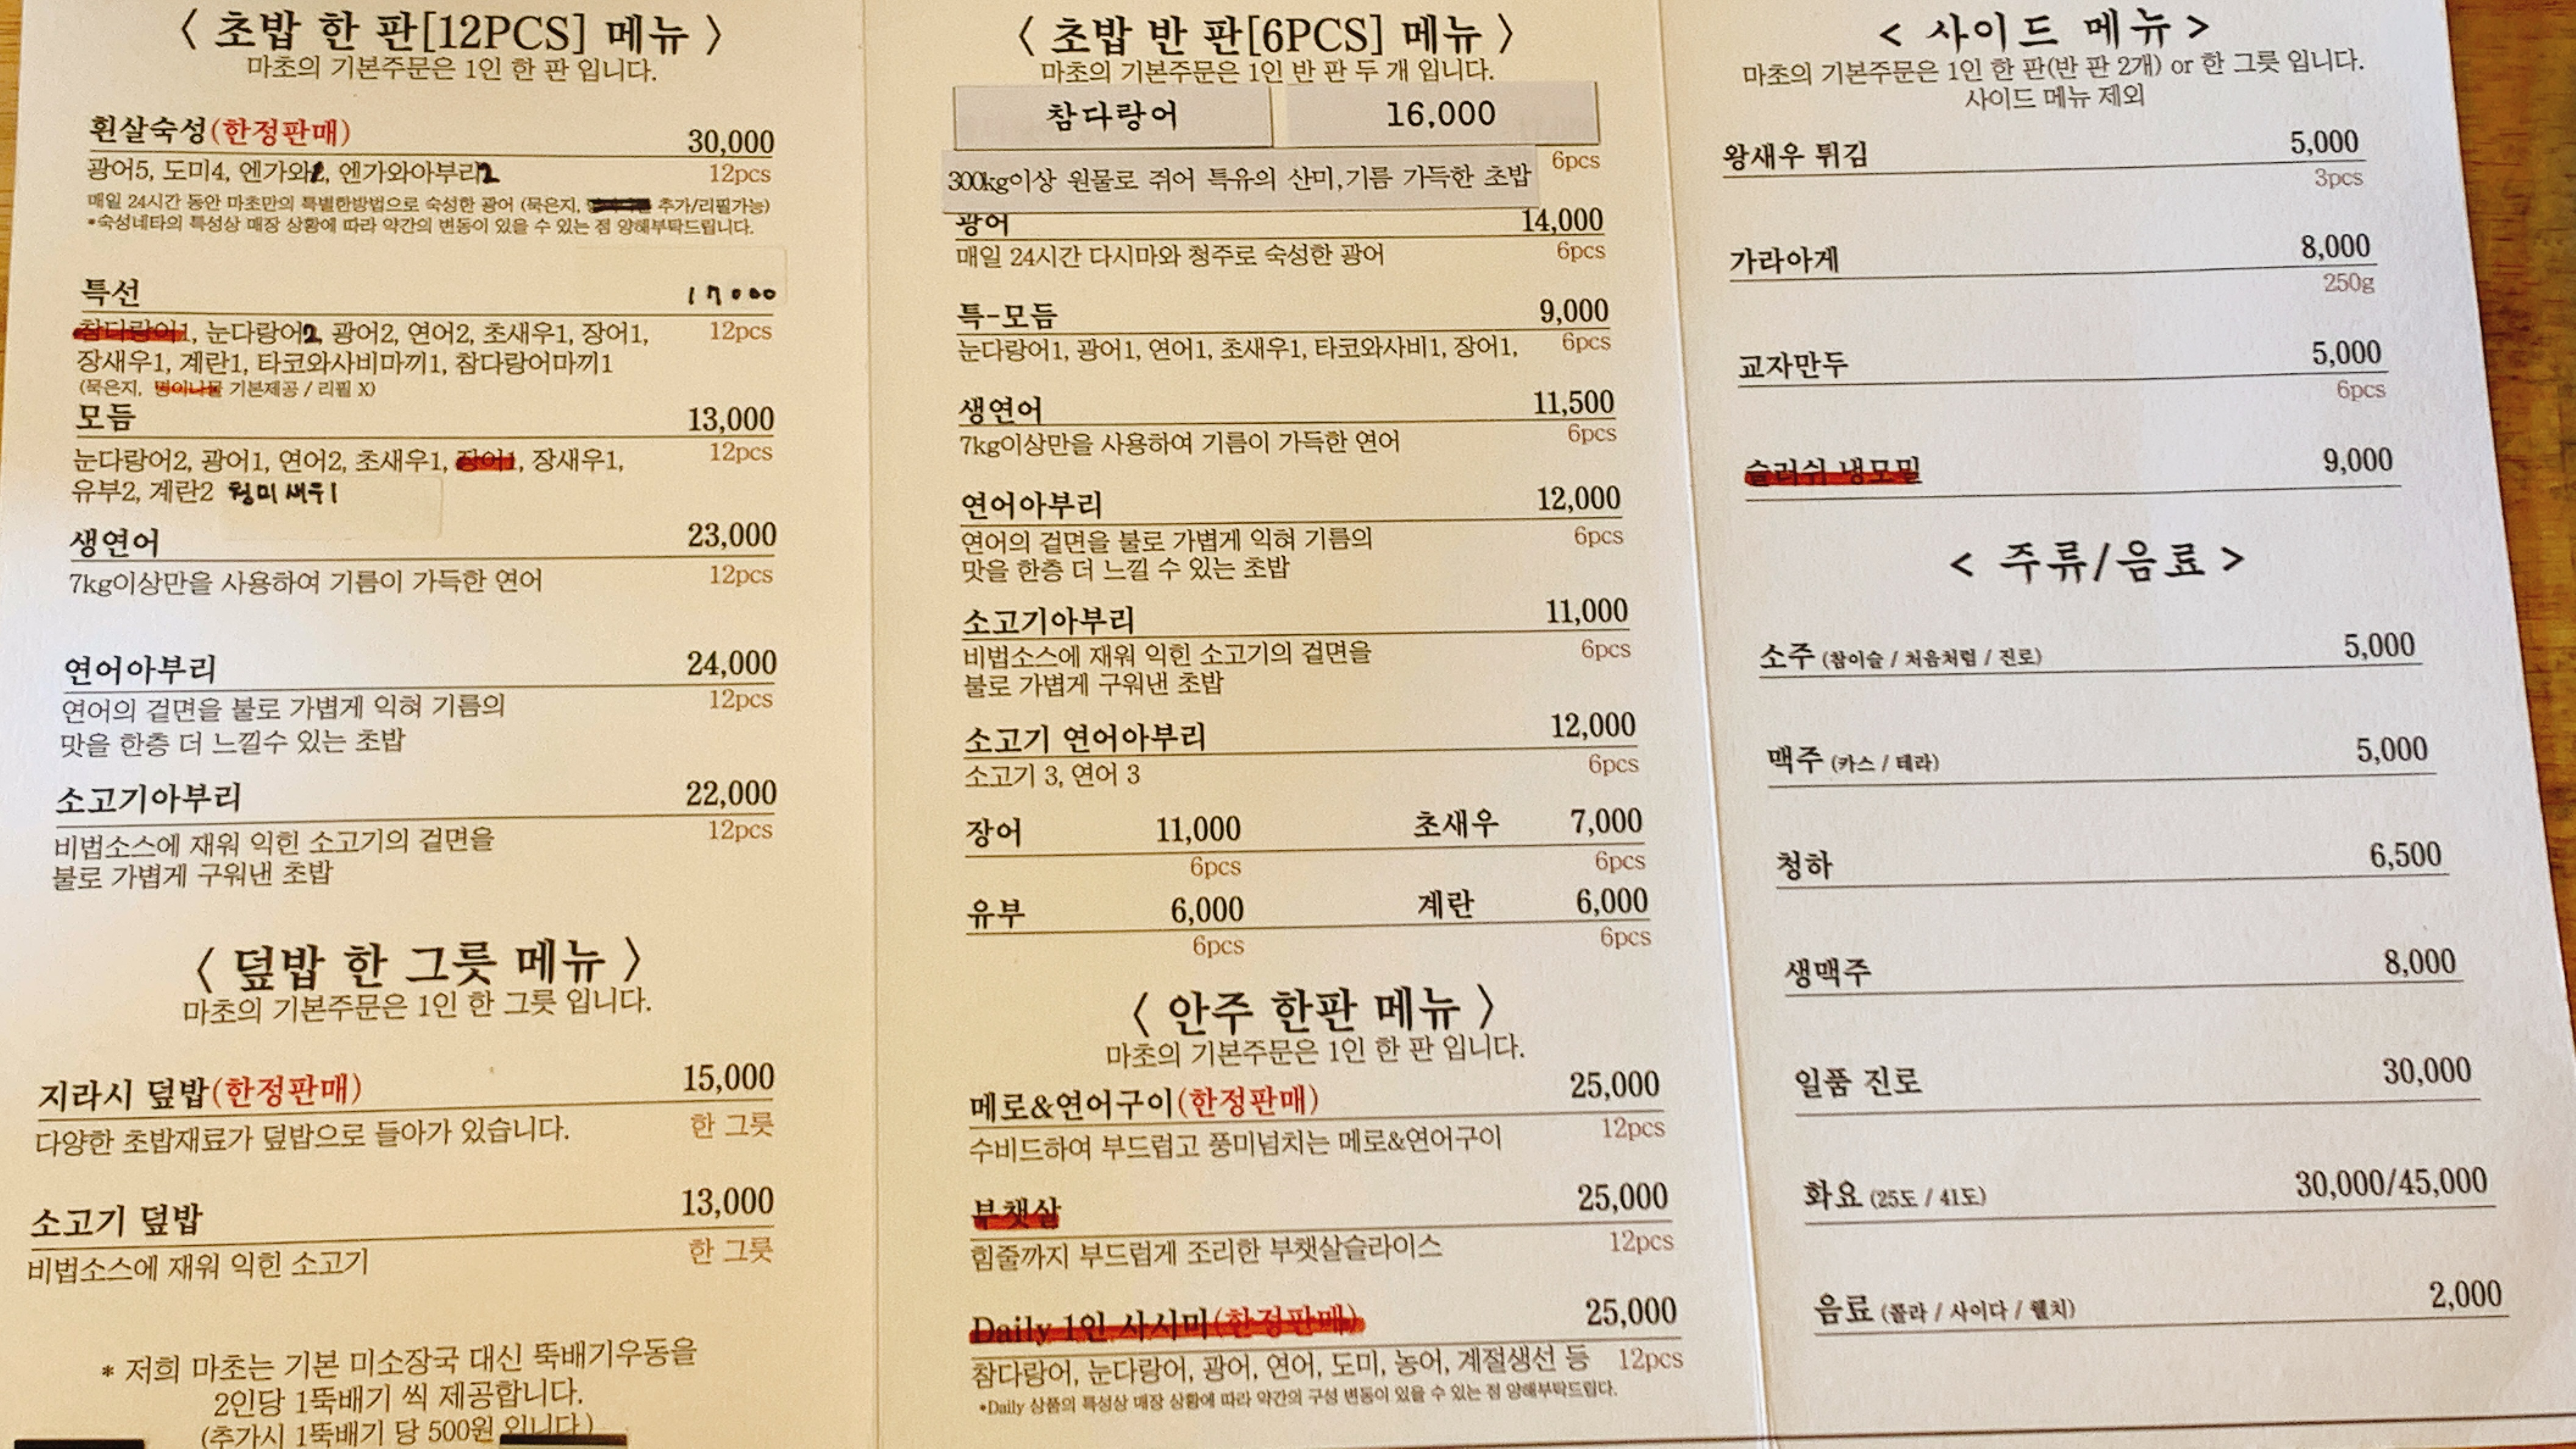 〈 초밥 한 판[12PCS] 메뉴 〉
마초의 기본주문은 1인 한 판 입니다.
흰살숙성(한정판매) 30,000
광어5, 도미4, 엔가와1, 엔가와아부리2 12pcs
매일 24시간 동안 마초만의 특별한방법으로 숙성한 광어 (묵은지, 추가/리필가능)
*숙성네타의 특성상 매장 상황에 따라 약간의 변동이 있을 수 있는 점 양해부탁드립니다.
특선 17000
참다랑어1, 눈다랑어2, 광어2, 연어2, 초새우1, 장어1, 12pcs
장새우1, 계란1, 타코와사비마끼1, 참다랑어마끼1
(묵은지, 명이나물 기본제공 / 리필 X)
모듬 13,000
눈다랑어2, 광어1, 연어2, 초새우1, 장어1, 장새우1, 12pcs
유부2, 계란2 청미새우1
생연어 23,000
7kg이상만을 사용하여 기름이 가득한 연어 12pcs
연어아부리 24,000
연어의 겉면을 불로 가볍게 익혀 기름의 12pcs
맛을 한층 더 느낄수 있는 초밥
소고기아부리 22,000
비법소스에 재워 익힌 소고기의 겉면을 12pcs
불로 가볍게 구워낸 초밥
〈 덮밥 한 그릇 메뉴 〉
마초의 기본주문은 1인 한 그릇 입니다.
지라시 덮밥(한정판매) 15,000
다양한 초밥재료가 덮밥으로 들아가 있습니다. 한 그릇
소고기 덮밥 13,000
비법소스에 재워 익힌 소고기 한 그릇
* 저희 마초는 기본 미소장국 대신 뚝배기우동을
2인당 1뚝배기 씩 제공합니다.
(추가시 1뚝배기 당 500원 입니다.)
〈 초밥 반 판[6PCS] 메뉴 〉
마초의 기본주문은 1인 반 판 두 개 입니다.
참다랑어 16,000
300kg이상 원물로 쥐어 특유의 산미,기름 가득한 초밥 6pcs
광어 14,000
매일 24시간 다시마와 청주로 숙성한 광어 6pcs
특-모듬 9,000
눈다랑어1, 광어1, 연어1, 초새우1, 타코와사비1, 장어1, 6pcs
생연어 11,500
7kg이상만을 사용하여 기름이 가득한 연어 6pcs
연어아부리 12,000
연어의 겉면을 불로 가볍게 익혀 기름의 6pcs
맛을 한층 더 느낄 수 있는 초밥
소고기아부리 11,000
비법소스에 재워 익힌 소고기의 겉면을 6pcs
불로 가볍게 구워낸 초밥
소고기 연어아부리 12,000
소고기 3, 연어 3 6pcs
장어 11,000 초새우 7,000
6pcs 6pcs
유부 6,000 계란 6,000
6pcs 6pcs
〈 안주 한판 메뉴 〉
마초의 기본주문은 1인 한 판 입니다.
메로&연어구이(한정판매) 25,000
수비드하여 부드럽고 풍미넘치는 메로&연어구이 12pcs
부챗살 25,000
힘줄까지 부드럽게 조리한 부챗살슬라이스 12pcs
Daily 1인 사시미(한정판매) 25,000
참다랑어, 눈다랑어, 광어, 연어, 도미, 농어, 계절생선 등 12pcs
*Daily 상품의 특성상 매장 상황에 따라 약간의 구성 변동이 있을 수 있는 점 양해부탁드립니다.
< 사이드 메뉴 >
마초의 기본주문은 1인 한 판(반 판 2개) or 한 그릇 입니다.
사이드 메뉴 제외
왕새우 튀김 5,000
3pcs
가라아게 8,000
250g
교자만두 5,000
6pcs
슬러쉬 냉모밀 9,000
< 주류/음료 >
소주 (참이슬 / 처음처럼 / 진로) 5,000
맥주 (카스 / 테라) 5,000
청하 6,500
생맥주 8,000
일품 진로 30,000
화요 (25도 / 41도) 30,000/45,000
음료 (콜라 / 사이다 / 웰치) 2,000